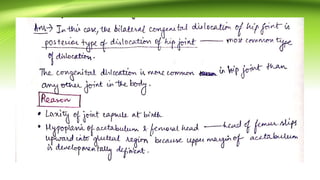 Ans→ In this case, the bilateral congenital dislocation of hip joint is
posterior type of dislocation of hip joint —— more common type
of dislocation.
The congenital dislocation is more common in hip joint than
any other joint in the body.
Reason
• Laxity of joint capsule at birth.
• Hypoplasia of acetabulum & femoral head —— head of femur slips
upward into gluteal region because upper margin of acetabulum
is developmentally deficient.